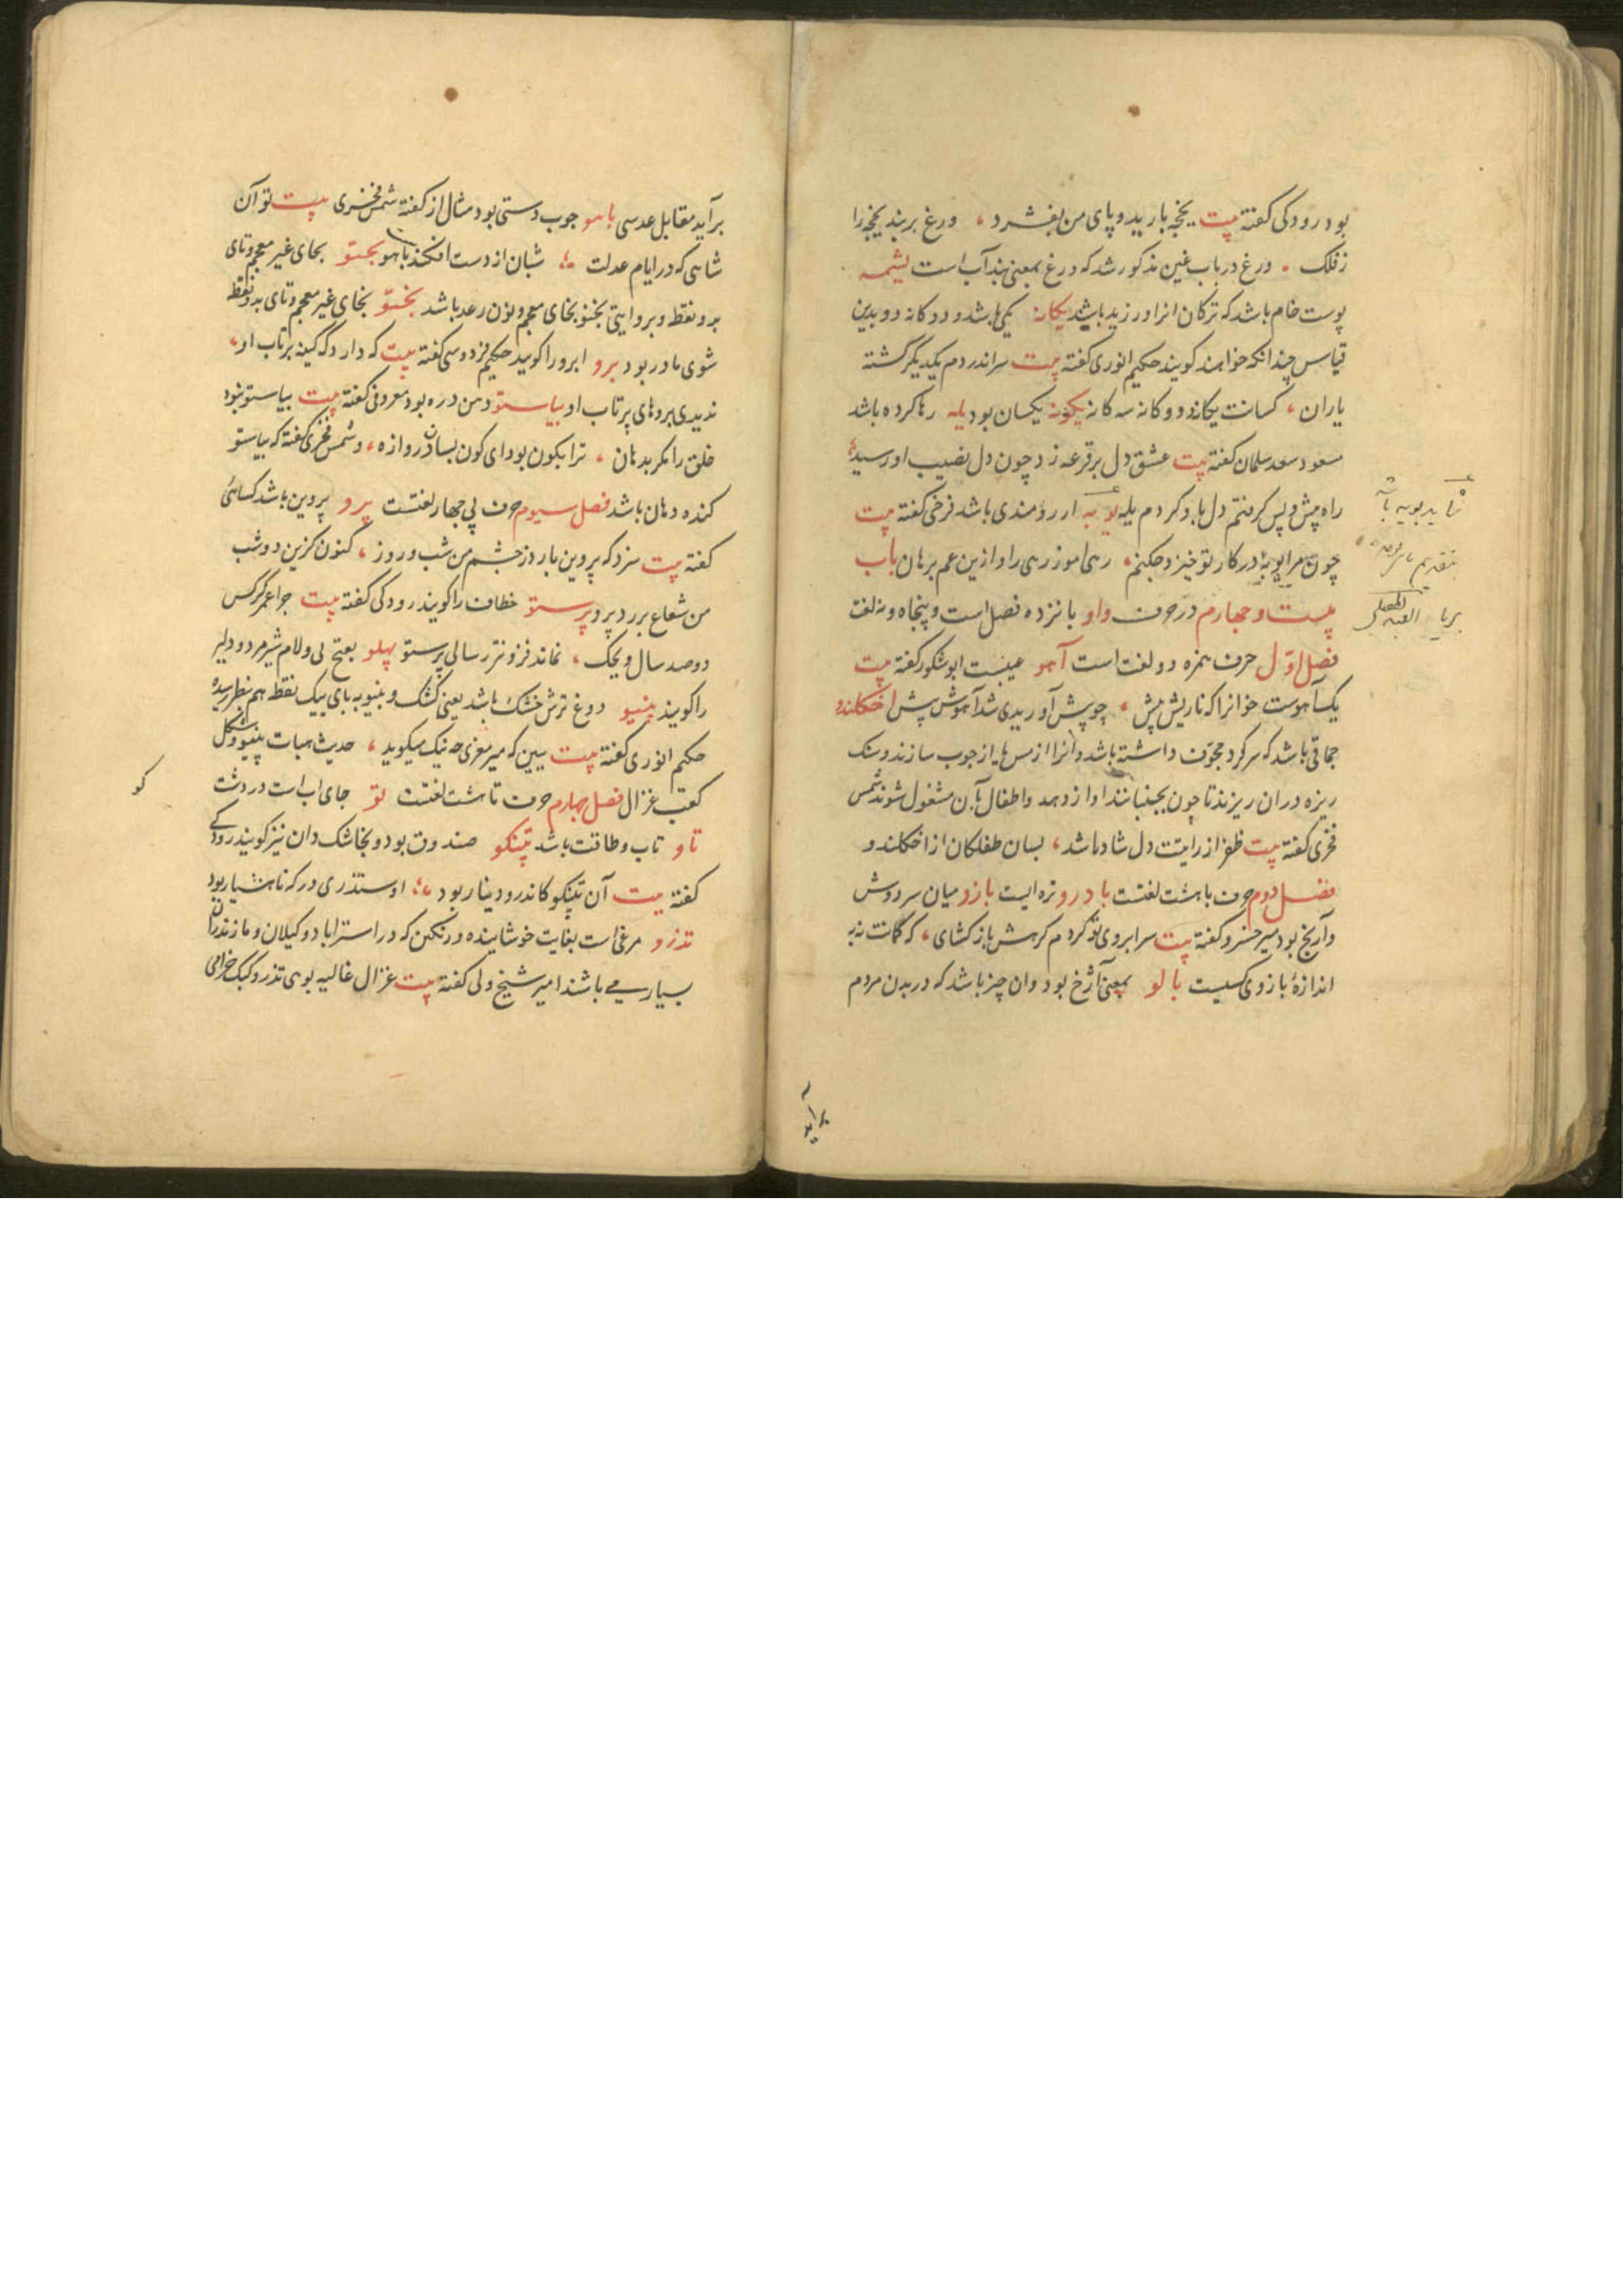 بود رودکی کفته بیت یخچه بارید و پای من بفشرد ، ورغ بربند یخچه را
ز فلک . ورغ در باب غین مذکور شد که ورغ بمعنی بند آب است یشمه
پوست خام باشد که ترکان انرا ورزیده باشند یکانه یکی باشد و دوکانه دو بدین
قیاس چندانکه خواهند کویند حکیم انوری کفته بیت سراندر دم یکدیگر کشته
یاران ، کسانت یکانه و دوکانه سه کانه یکونه یکسان بود یله رها کرده باشد
مسعود سعد سلمان کفته بیت عشق دل بر قرعه زد چون دل نصیب او رسید
راه پیش و پس کرفتم دل بدو کردم یله یوبه ارزومندی باشد فرخی کفته بیت
چون مرا یوبهٔ درکار تو خیزد چکنم ، رهی اموز رهی را و ازین غم برهان باب
بیست و چهارم در حرف واو پانزده فصل است و پنجاه و نه لغت
فصل اول حرف همزه دو لغت است آهو عیبست ابو شکور کفته بیت
یک آهوست خوانرا که ناریش پیش ، چو پیش آوریدی شد آهوش پیش اخکلندو
جماقی باشد که سر کرد مجوف داشته باشد و انرا از مس یا از چوب سازند و سنک
ریزه دران ریزند تا چون بجنبانند اواز دهد و اطفال بآن مشغول شوند شمس
فخری کفته بیت ظفر از رایتت دل شاد باشد ، بسان طفلکان از اخکلندو
فصل دوم حرف با هشت لغتست بادرو تره ایست بازو میان سر دوش
و آرنج بود میر خسرو کفته بیت سر ابروی تو کردم کرهش باز کشای ، که کمانت نه به
اندازهٔ بازوی کسیست بالو بمعنی آژخ بود وان چیز باشد که در بدن مردم
برآید
برآید مقابل عدسی باهو چوب دستی بود مثال از کفته شمس فخری بیت تو آن
شاهی که در ایام عدلت ؛ شبان از دست افکند باهو بختو بخای غیر معجم و تای
بدو نقطه و بروایتی بخنو بخای معجم و نون رعد باشد بختو بخای غیر معجم و تای بدو نقطه
شوی مادر بود برو ابرو را کویند حکیم فردوسی کفته بیت که دارد که کینه پرتاب او ،
ندیدی بروهای پرتاب او بیاستو دهن دره بود معروفی کفته بیت بیاستو نبود
خلق را مکر بدهان ، ترا بکون بود ای کون بسان دروازه ، و شمس فخری کفته که بیاستو
کنده دهان باشد فصل سیوم حرف پی چهار لغتست پرو پروین باشد کسائی
کفته بیت سزد که پروین بارد ز چشم من شب و روز ، کنون کزین دو شب
من شعاع بر زد پرو پرستو خطاف را کویند رودکی کفته بیت چرا عمر کرکس
دو صد سال ویحک ، نماند فزونتر ز سالی پرستو پهلو بفتح پی و لام شیر مرد و دلیر
را کویند پینو دوغ ترش خشک باشد یعنی کشک و بینو به بای بیک نقطه هم بنظر رسیده
حکیم انوری کفته بیت ببین که میر معزی چه نیک میکوید ، حدیث هیات پینو و شکل
کعب غزال فصل چهارم حرف تا هشت لغتست تو جای اب است در دشت
تاو تاب و طاقت باشد تپنکو صندوق بود و بخاشک دان نیز کویند رودکی
کفته بیت آن تپنکو کاندرو دینار بود ؛ اوستد زی در که ناهشیار بود
تذرو مرغی است بغایت خوشاینده و رنکین که در استراباد و کیلان و مازندران
بسیار می باشند امیر شیخ ولی کفته بیت غزال غالیه بوی تذرو کبک خرامی
کو